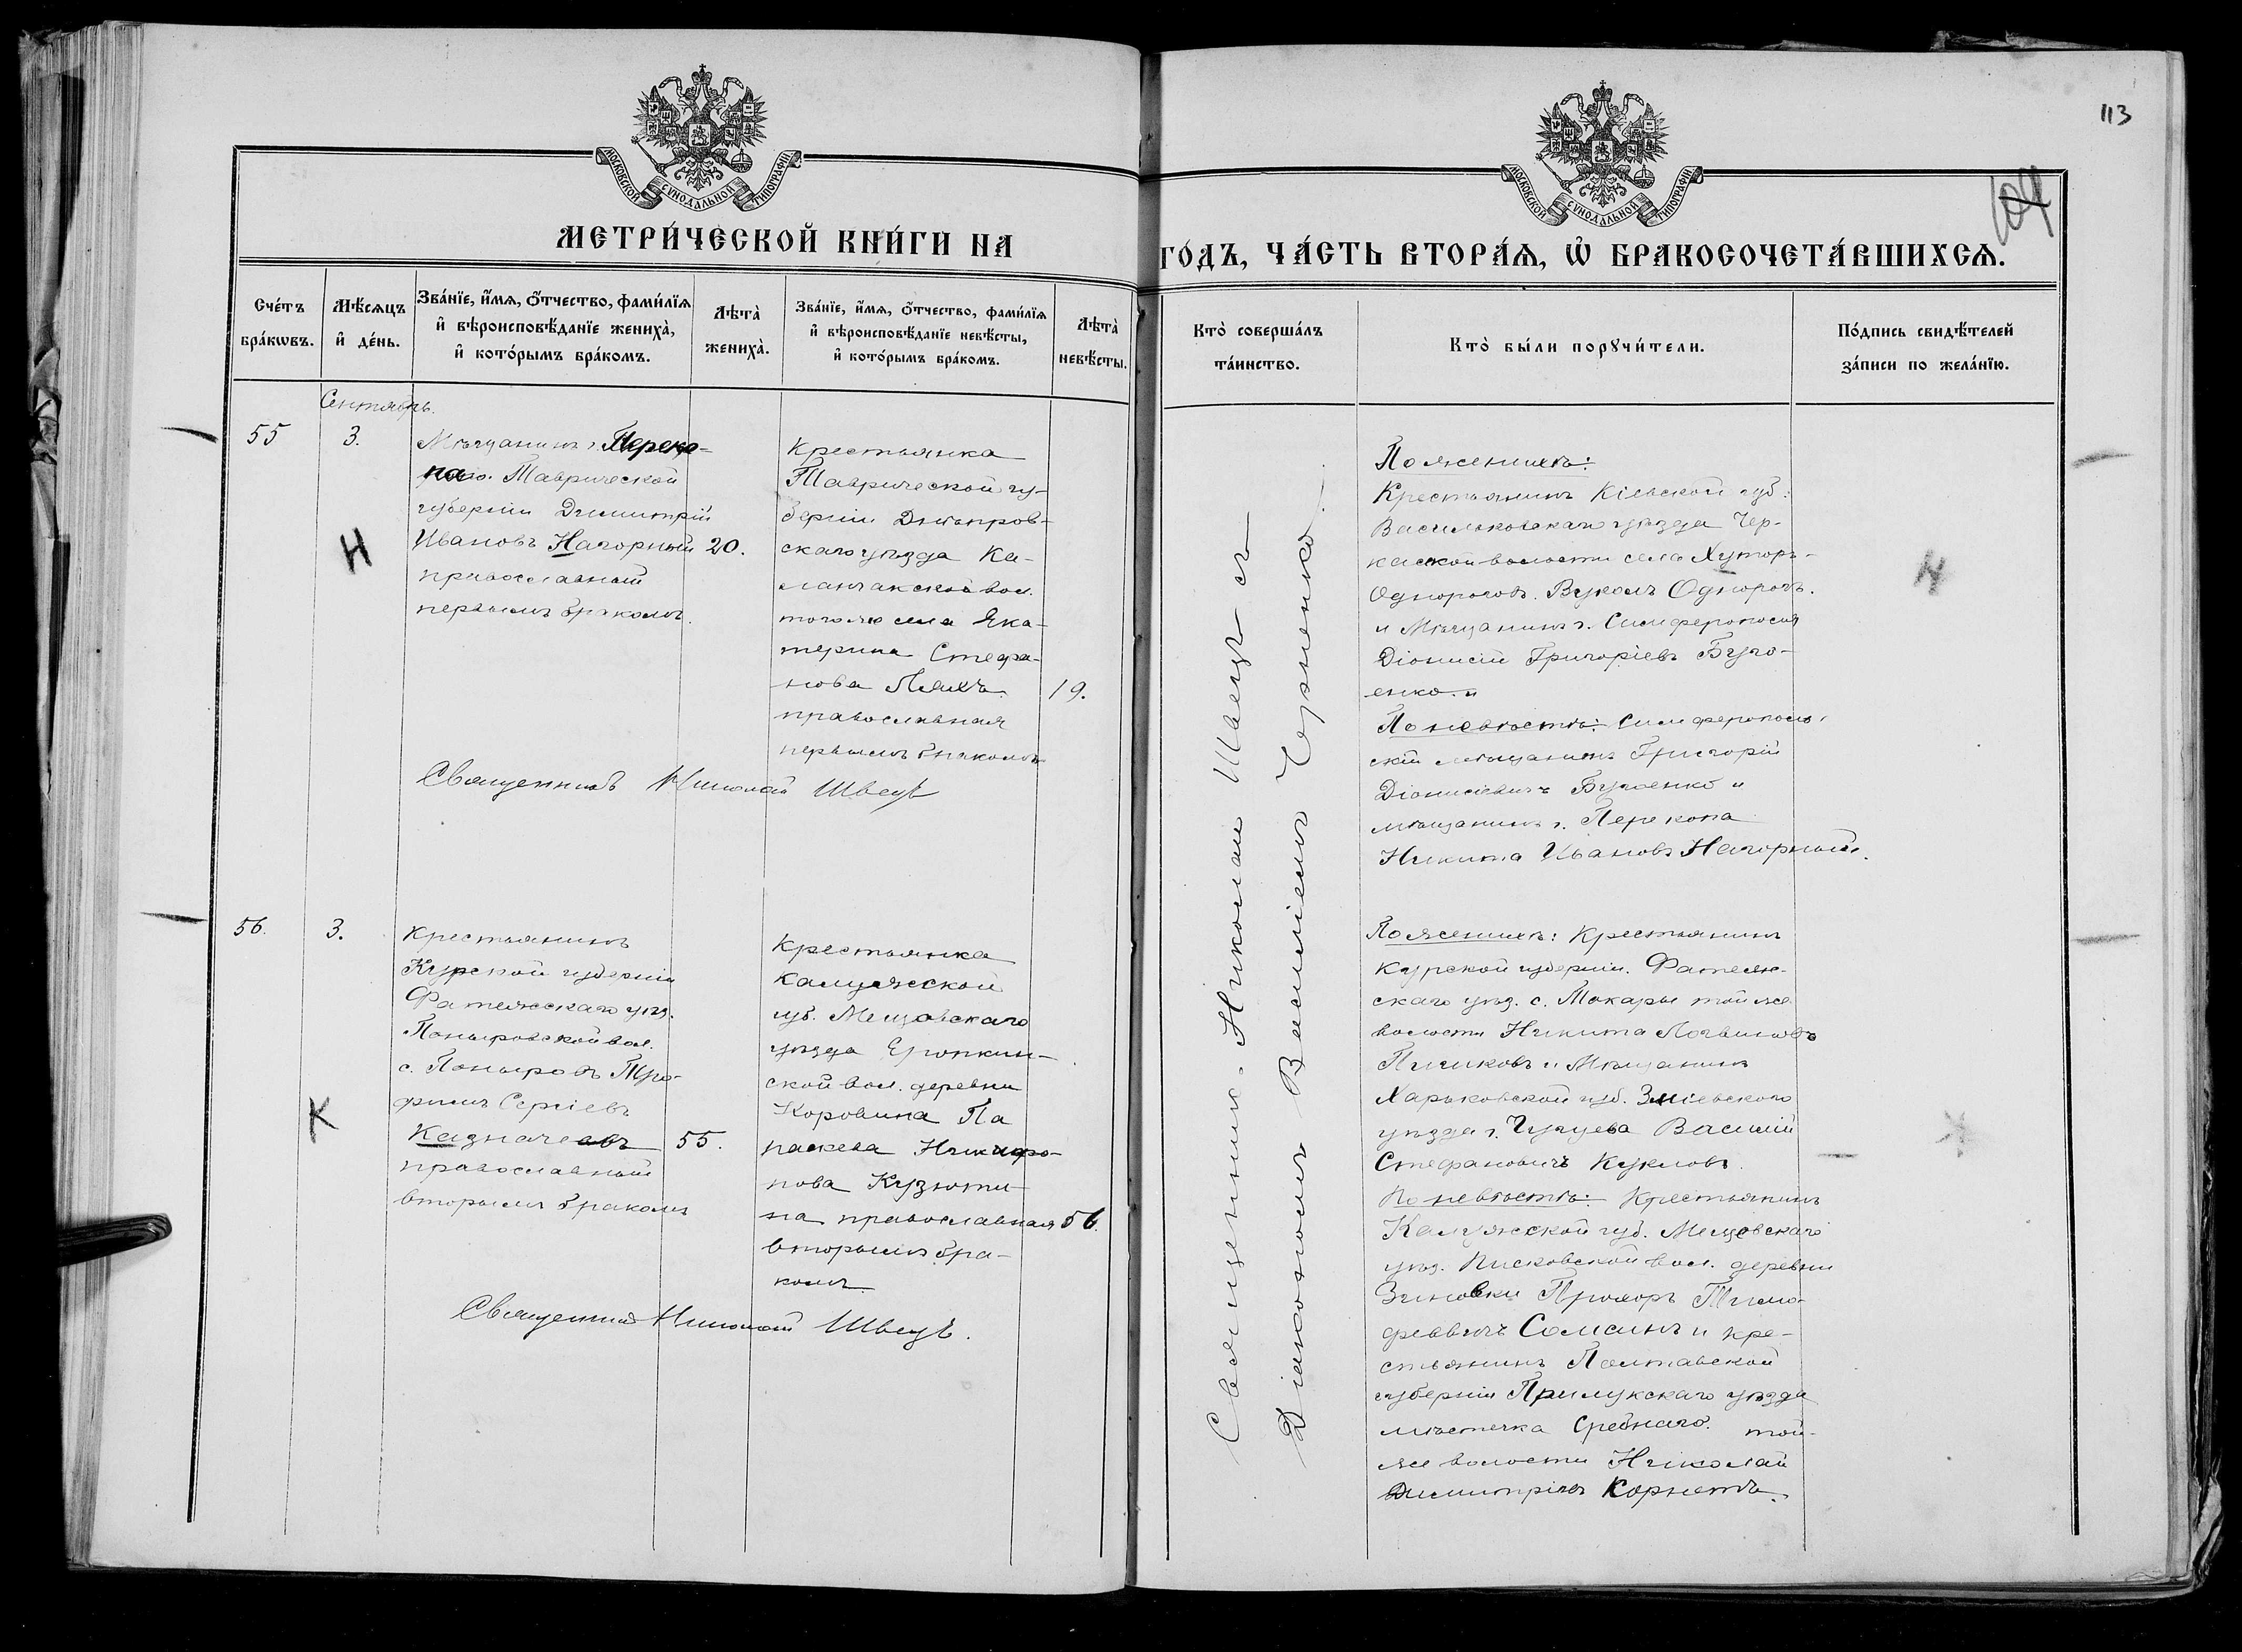 113
104
МОСКОВСКОЙ СУНОДАЛЬНОЙ ТИПОГРАФІИ
МОСКОВСКОЙ СУНОДАЛЬНОЙ ТИПОГРАФІИ
МЕТРИ́ЧЕСКОЙ КНИ́ГИ НА
ГО́ДЪ, ЧА́СТЬ ВТОРА́Ѧ, Ѽ БРАКОСОЧЕТА́ВШИХСѦ.
Сче́тъ
бра́кωвъ.
Мѣ́сѧцъ
и҆ де́нь.
Зва́нїе, и҆́мѧ, ѻ҆́тчество, фами́лїѧ
и҆ вѣроисповѣ́данїе жениха̀,
и҆ кото́рымъ бра́комъ.
Лѣта̀
жениха̀.
Зва́нїе, и҆́мѧ, ѻ҆́тчество, фами́лїѧ
и҆ вѣроисповѣ́данїе невѣ́сты,
и҆ кото́рымъ бра́комъ.
Лѣта̀
невѣ́сты.
Кто̀ соверша́лъ
та́инство.
Кто̀ бы́ли порꙋчи́тели.
По́дпись свидѣ́телей
за́писи по жела́нїю.
Сентябрь.
55
3.
Н
Мѣщанинъ г. Переко-
па Таврической
губерніи Димитрій
Ивановъ Нагорный
православный
первымъ бракомъ.
20.
Крестьянка
Таврической гу-
берніи Днѣпров-
скаго уѣзда Ка-
ланчакской вол.
того же села Ека-
терина Стефа-
нова Ляхъ
православная
первымъ бракомъ
19.
Священникъ Николай Швецъ
Священникъ Николай Швецъ съ
Діакономъ Василіемъ Черненко.
По женихѣ:
Крестьянинъ Кіевской губ.
Васильковскаго уѣзда Чер-
каской волости села Хуторъ-
Однороговъ Вуколъ Однорогъ.
и Мѣщанинъ г. Симферополя
Діонисій Григоріевъ Буго-
енко. и
По невѣстѣ: Симферополь-
скій мѣщанинъ Григорій
Діонисіевичъ Бугоенко и
мѣщанинъ г. Перекопа
Никита Ивановъ Нагорный.
Н
56.
3.
К
Крестьянинъ
Курской губерніи
Фатежскаго уѣз.
Поныровской вол.
с. Поныровъ Тро-
фимъ Сергіевъ
Казначеевъ
православный
вторымъ бракомъ
55.
Крестьянка
Калужской
губ. Мещовскаго
уѣзда Еропкин-
ской вол. деревни
Коровина Па
раскева Никифо-
рова Кузюти-
на православная
вторымъ бра-
комъ.
56.
Священникъ Николай Швецъ.
По женихѣ: Крестьянинъ
Курской губерніи. Фатеж-
скаго уѣз. с. Макары той же
волости Никита Логвиновъ
и Мѣщанинъ
Харьковской губ. Зміевского
уѣзда г. Чугуева Василій
Стефановичъ Кукловъ.
По невѣстѣ: Крестьянинъ
Калужской губ. Мещовскаго
уѣз. вол. деревни
Зиновки Прохоръ Тимо-
феевичъ Сомсинъ и кре-
стьянинъ Полтавской
губерніи Прилукскаго уѣзда
мѣстечка Сребнаго той-
же волости Николай
Димитріевъ Корнетъ.
К